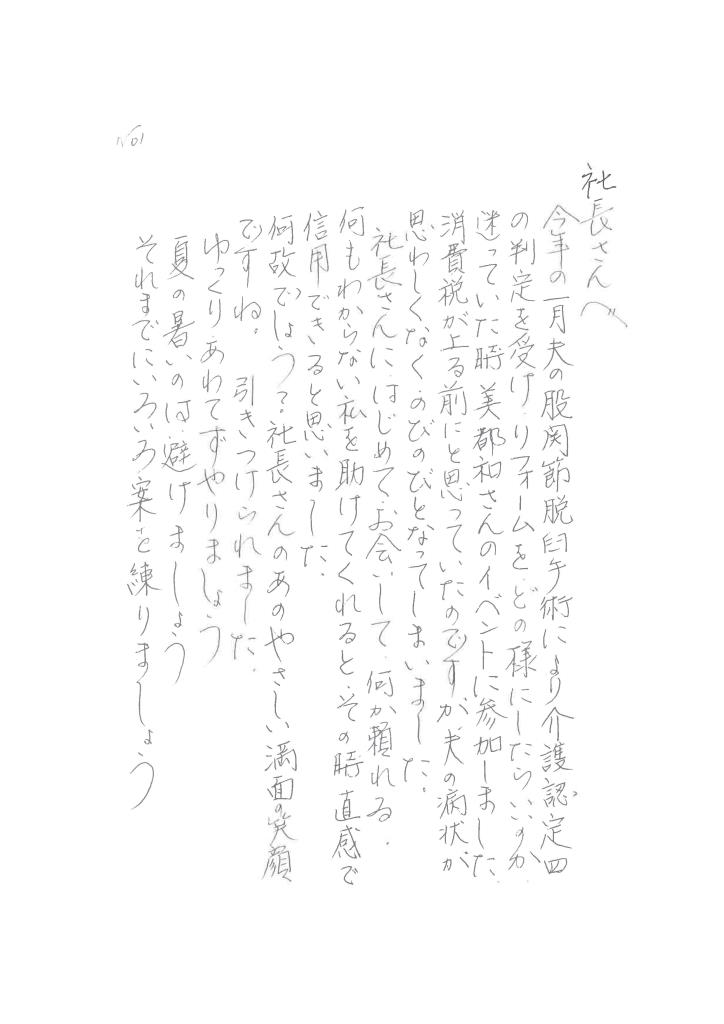 No1
社長さんへ
今年の一月夫の股関節脱臼手術により介護認定四
の判定を受け、リフォームを、どの様にしたらいいのか、
迷っていた時、美都和さんのイベントに参加しました。
消費税が上る前にと思っていたのですが、夫の病状が
思わしくなく、のびのびとなってしまいました。
社長さんに、はじめて、お会いして、何か頼れる、
何もわからない私を助けてくれると、その時、直感で
信用できると思いました。
何故でしょう?社長さんのあのやさしい満面の笑顔
ですね。引きつけられました。
ゆっくりあわてずやりましょう
夏の暑いのは、避けましょう
それまでにいろいろ案を練りましょう